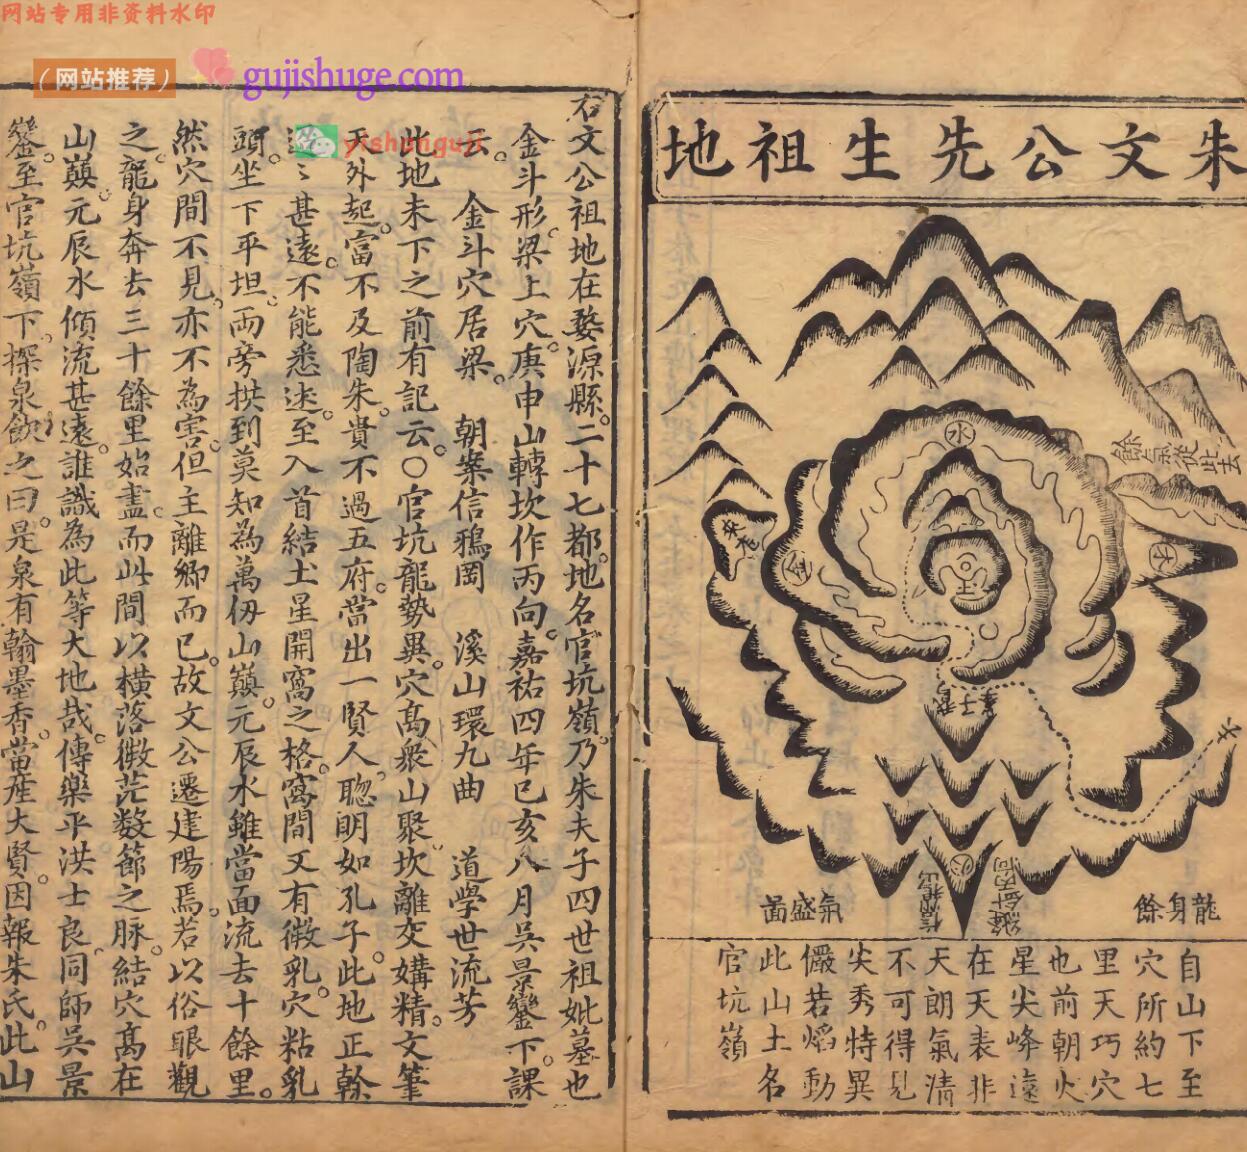 网站专用非资料水印
（网站推荐）
gujishuge.com
yishengui
朱文公先生祖地
水
金
土
木
火
餘氣從此去
來龍
孝子峯
龍身餘
氣盛圖
自山下至
穴所約七
里天巧穴
也前朝火
星尖峰遠
在天表非
天朗氣清
不可得見
尖秀特異
儼若焰動
此山土名
官坑嶺
右文公祖地在婺源縣二十七都地名官坑嶺乃朱夫子四世祖妣墓也
金斗形梁上穴庚申山轉坎作丙向嘉祐四年己亥八月吳景鸞下課
云　金斗穴居梁　朝案信鴉岡　溪山環九曲　道學世流芳
此地未下之前有記云○官坑龍勢異穴高衆山聚坎離交媾精文筆
天外起富不及陶朱貴不過五府當出一賢人聰明如孔子此地正榦
甚遠不能悉述至入首結土星開窩之格窩間又有微乳穴粘乳
頭坐下平坦兩旁拱到莫知為萬仞山巔元辰水雖當面流去十餘里
然穴間不見亦不為害但主離鄉而已故文公遷建陽焉若以俗眼觀
之龍身奔去三十餘里始盡而此間以橫落微茫数節之脉結穴高在
山巔元辰水傾流甚遠誰識為此等大地哉傳樂平洪士良同師吳景
鸞至官坑嶺下探泉飲之曰是泉有翰墨香當産大賢因報朱氏此山